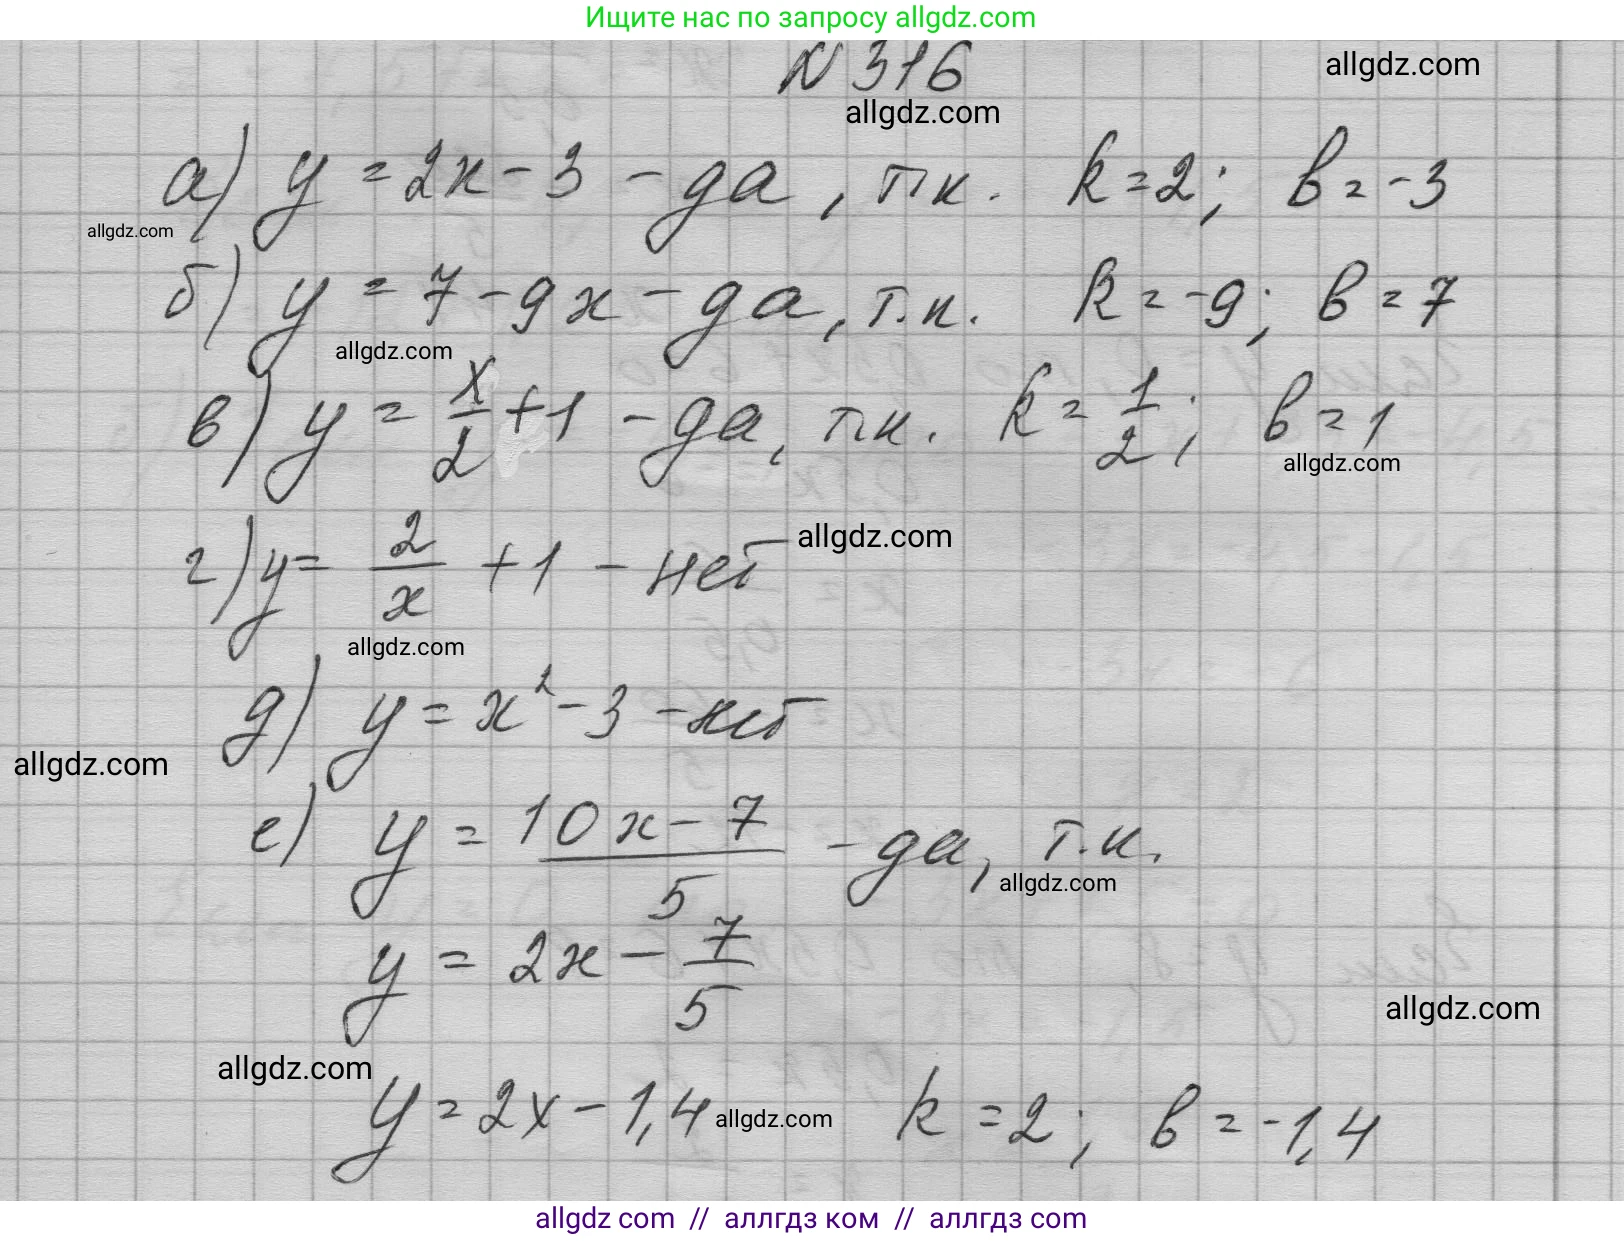 Ищите нас по запросу allgdz.com
N 316
allgdz.com
allgdz.com
а) y = 2x - 3 - да, т.к. k = 2; b = -3
allgdz.com
б) y = 7 - 9x - да, т.к. k = -9; b = 7
allgdz.com
в) y = x/2 + 1 - да, т.к. k = 1/2; b = 1
allgdz.com
allgdz.com
г) y = 2/x + 1 - нет
allgdz.com
д) y = x² - 3 - нет
allgdz.com
е) y = (10x - 7)/5 - да, т.к.
allgdz.com
y = 2x - 7/5
allgdz.com
allgdz.com
y = 2x - 1,4 k = 2; b = -1,4
allgdz.com
allgdz com // аллгдз ком // аллгдз com